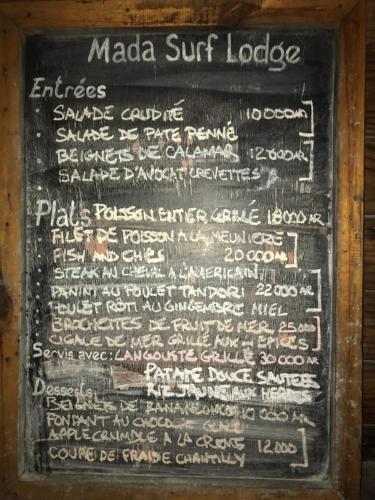 Mada Surf Lodge
Entrées
SALADE CRUDITÉ 10 000 AR
SALADE DE PATE PENNÉ
BEIGNETS DE CALAMAR 12 000 AR
SALADE D'AVOCAT CREVETTES
Plats POISSON ENTIER GRILLÉ 18000 AR
FILET DE POISSON A LA MEUNIERE
FISH AND CHIPS 20 000 AR
STEAK AU CHEVAL A L'AMERICAIN
PANINI AU POULET TANDORI 22 000 AR
POULET RÔTI AU GINGEMBRE MIEL
BROCHETTES DE FRUIT DE MER 25 000
CIGALE DE MER GRILLÉ AUX 4 EPICES
Servis avec: LANGOUSTE GRILLÉ 30 000 AR
PATATE DOUCE SAUTEES
RIZ JAUNE AUX HERBES
Desserts
BEIGNETS DE BANANE 10 000 AR
FONDANT AU CHOCOLAT
APPLE CRUMBLE A LA CREME 12 000
COUPE DE FRAISE CHANTILLY